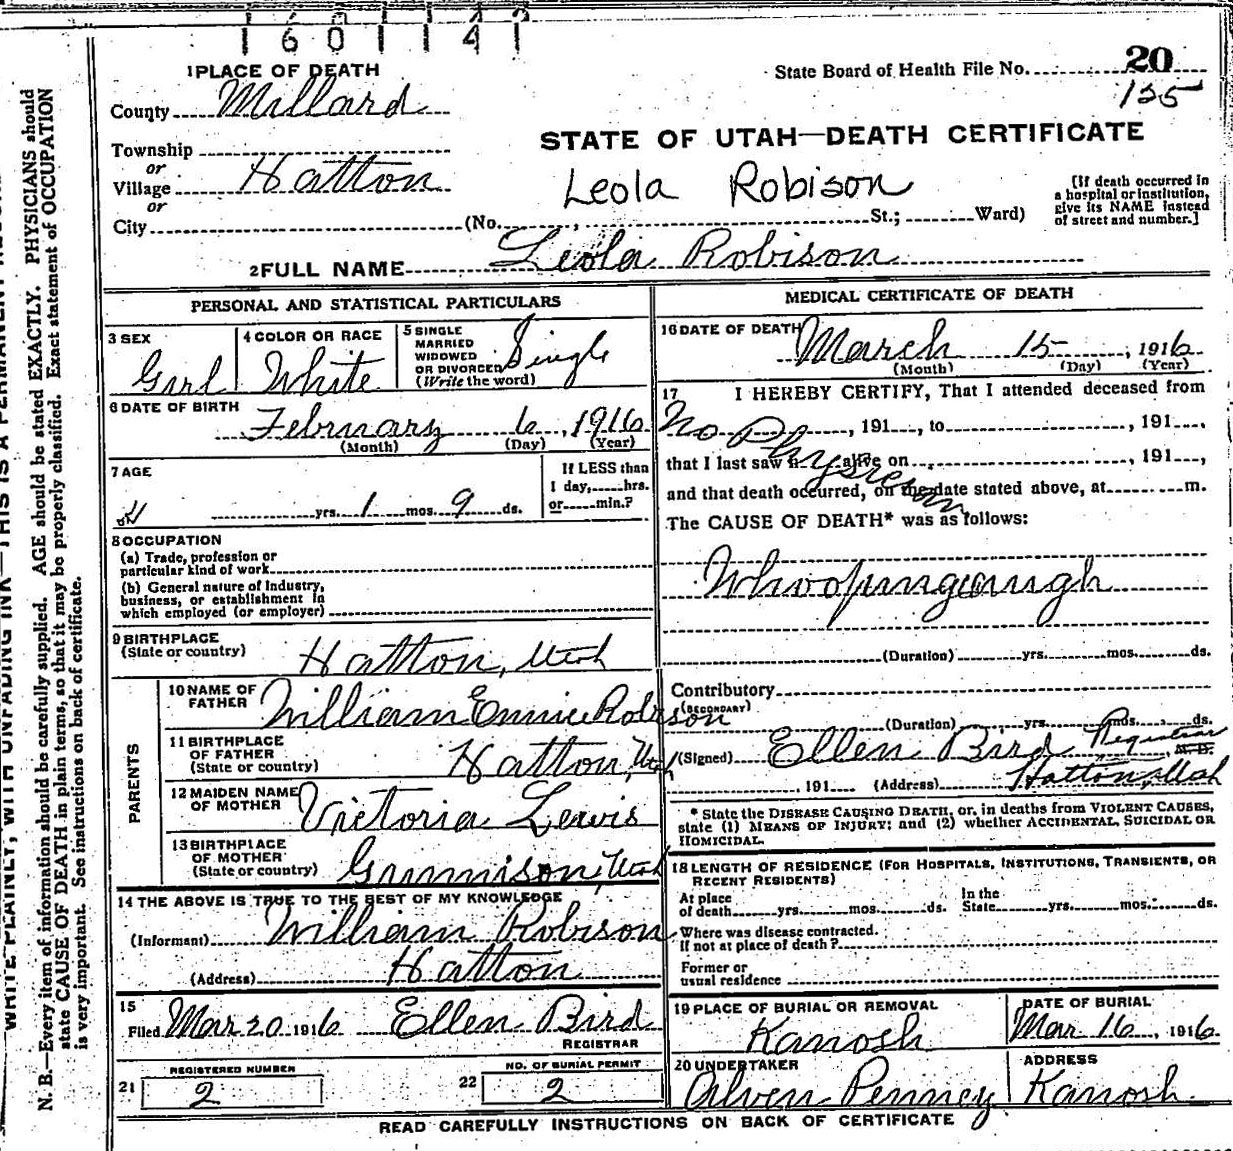 1601141
1 PLACE OF DEATH
State Board of Health File No. 20
125
County Millard
STATE OF UTAH—DEATH CERTIFICATE
Township
or
Village Hatton
or
City
Leola Robison
(No. , St.; Ward)
[If death occurred in
a hospital or institution,
give its NAME instead
of street and number.]
2 FULL NAME Leola Robison
PERSONAL AND STATISTICAL PARTICULARS
3 SEX
Girl
4 COLOR OR RACE
White
5 SINGLE
MARRIED
WIDOWED
OR DIVORCED
(Write the word)
Single
6 DATE OF BIRTH
February 6, 1916
(Month) (Day) (Year)
7 AGE
yrs. 1 mos. 9 ds.
If LESS than
1 day, hrs.
or min.?
8 OCCUPATION
(a) Trade, profession or
particular kind of work
(b) General nature of Industry,
business, or establishment in
which employed (or employer)
9 BIRTHPLACE
(State or country)
Hatton, Utah
PARENTS
10 NAME OF
FATHER
William Robison
11 BIRTHPLACE
OF FATHER
(State or country)
Hatton, Utah
12 MAIDEN NAME
OF MOTHER
Victoria Lewis
13 BIRTHPLACE
OF MOTHER
(State or country)
Gunnison, Utah
14 THE ABOVE IS TRUE TO THE BEST OF MY KNOWLEDGE
(Informant) William Robison
(Address) Hatton
15
Filed Mar 20 1916 Ellen Bird
REGISTRAR
21
REGISTERED NUMBER
2
22
NO. OF BURIAL PERMIT
2
MEDICAL CERTIFICATE OF DEATH
16 DATE OF DEATH
March 15, 1916
(Month) (Day) (Year)
17 I HEREBY CERTIFY, That I attended deceased from
No Physician
, 191 , to , 191 ,
that I last saw h alive on , 191 ,
and that death occurred, on the date stated above, at m.
The CAUSE OF DEATH* was as follows:
Whoopingcaugh
(Duration) yrs. mos. ds.
Contributory
(SECONDARY)
(Duration) yrs. mos. ds.
(Signed) Ellen Bird Registrar M. D.
, 191 (Address) Hatton, Utah
* State the DISEASE CAUSING DEATH, or, in deaths from VIOLENT CAUSES,
state (1) MEANS OF INJURY; and (2) whether ACCIDENTAL, SUICIDAL OR
HOMICIDAL.
18 LENGTH OF RESIDENCE (FOR HOSPITALS, INSTITUTIONS, TRANSIENTS, OR
RECENT RESIDENTS)
At place
of death yrs. mos. ds.
In the
State yrs. mos. ds.
Where was disease contracted.
If not at place of death?
Former or
usual residence
19 PLACE OF BURIAL OR REMOVAL
Kanosh
DATE OF BURIAL
Mar 16, 1916
20 UNDERTAKER
Alven Penney
ADDRESS
Kanosh
READ CAREFULLY INSTRUCTIONS ON BACK OF CERTIFICATE
WRITE PLAINLY, WITH UNFADING INK—THIS IS A PERMANENT
N. B.—Every item of information should be carefully supplied. AGE should be stated EXACTLY. PHYSICIANS should
state CAUSE OF DEATH in plain terms, so that it may be properly classified. Exact statement of OCCUPATION
is very important. See instructions on back of certificate.